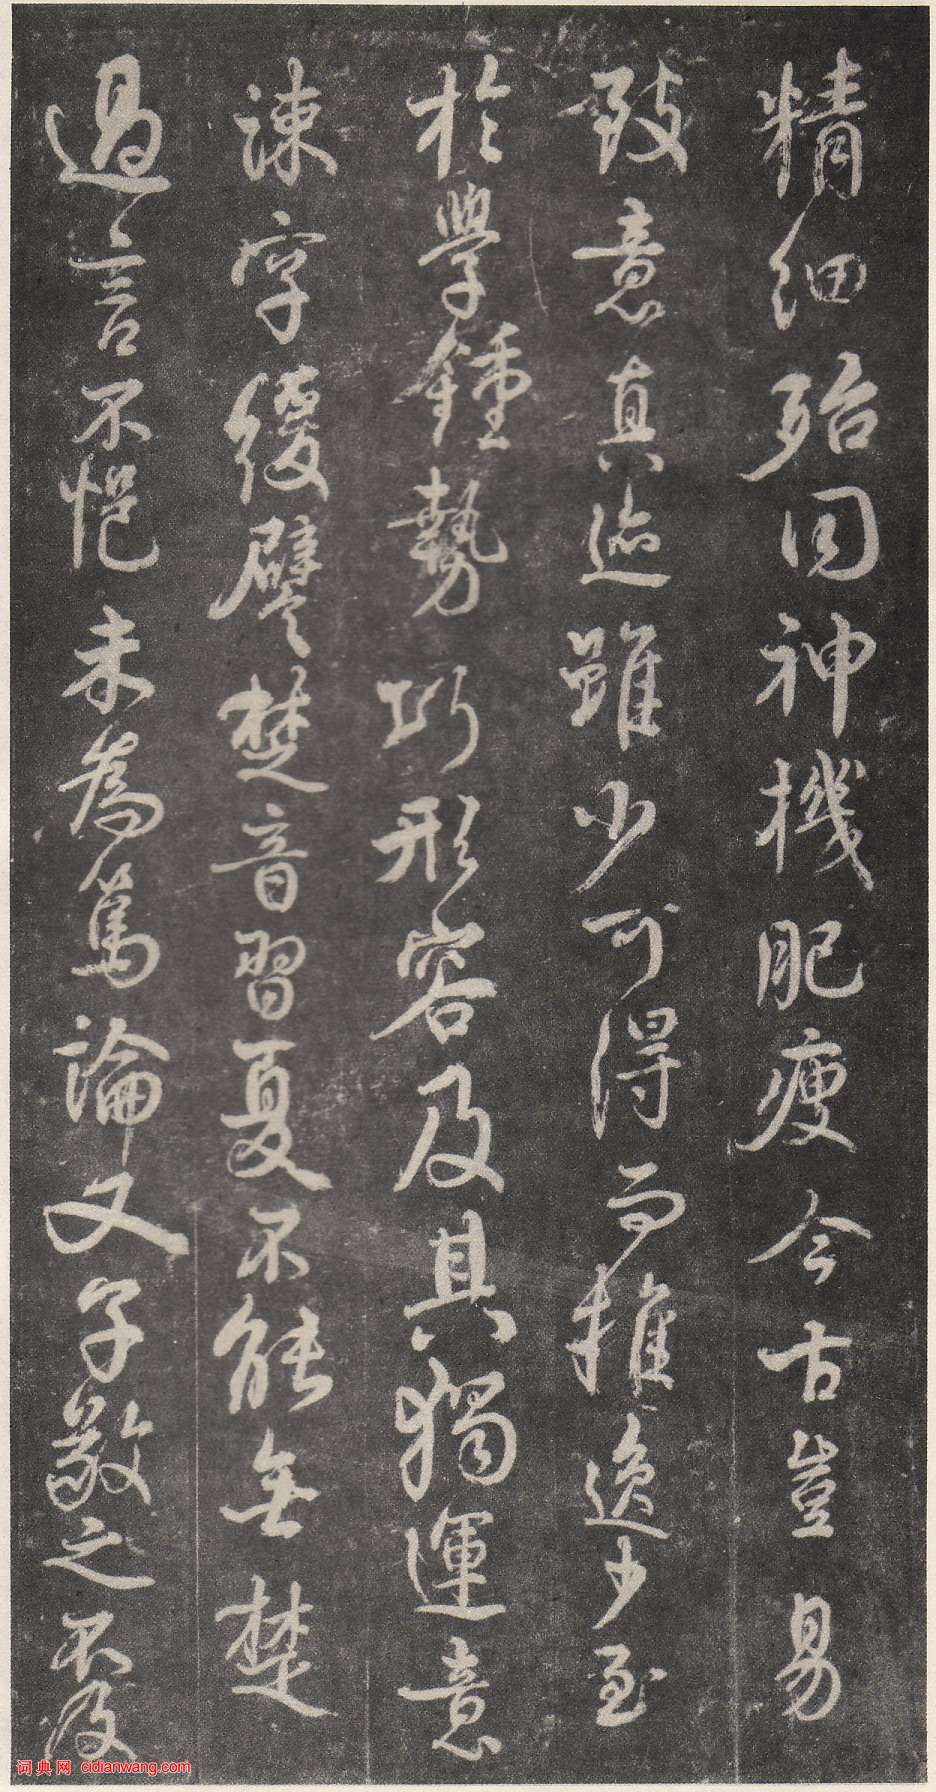 精細殆同神機肥瘦今古豈易
致意真迹雖少可得而推逸少至
於學鍾勢巧形容及其獨運意
疎字緩譬楚音習夏不能無楚
過言不悒未為篤論又子敬之不及
词典网 cidianwang.com